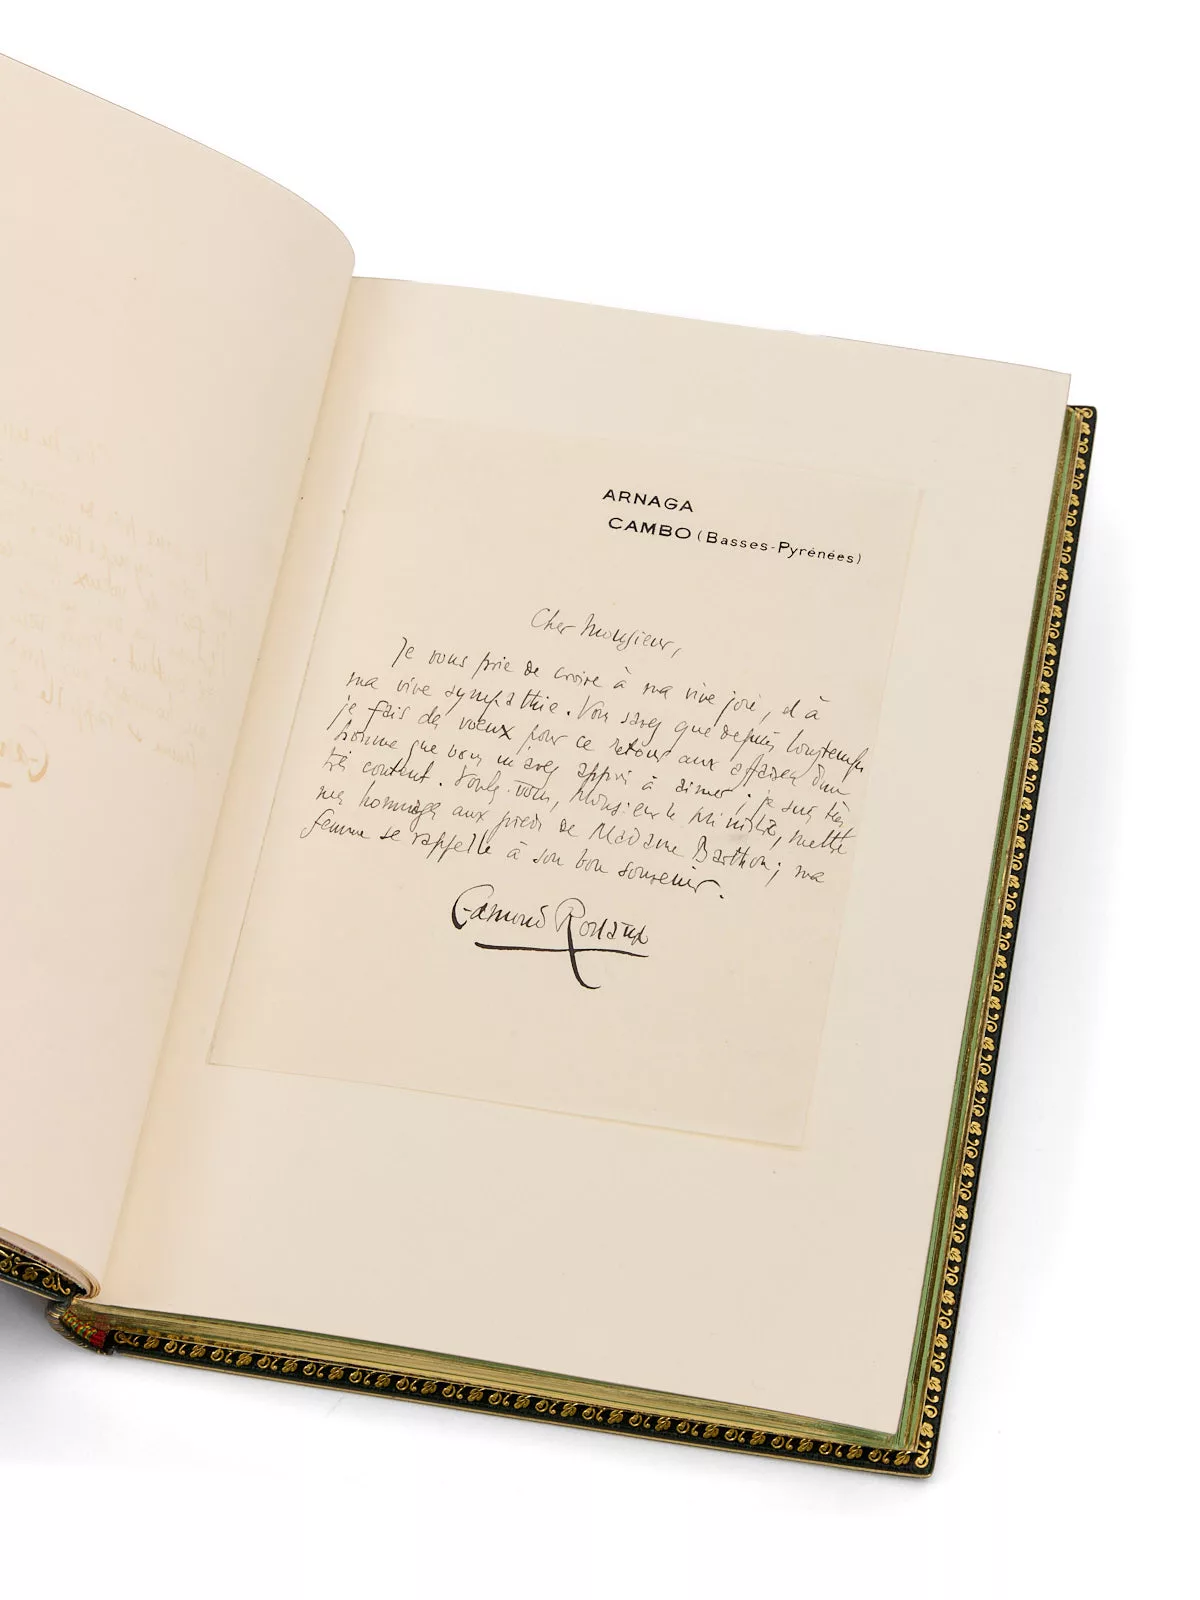 ARNAGA
CAMBO (Basses-Pyrénées)
Cher Monsieur,
Je vous prie de croire à ma vive joie, et à
ma vive sympathie. Vous savez que depuis longtemps
je fais des voeux pour ce retour aux affaires d'un
homme que vous m'avez appris à aimer ; je suis très
très content. Voulez-vous, Monsieur le Ministre, mettre
mes hommages aux pieds de Madame Barthou ; ma
femme se rappelle à son bon souvenir.
Edmond Rostand